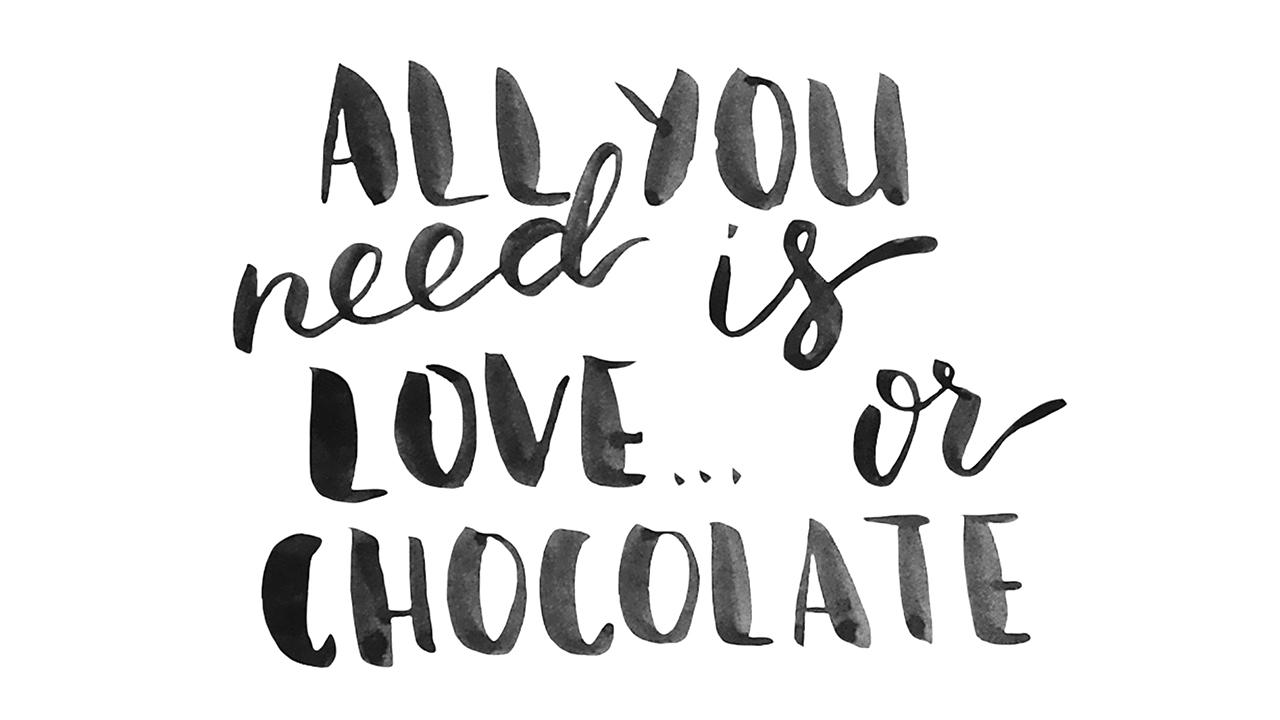 ALL YOU
need is
LOVE... or
CHOCOLATE